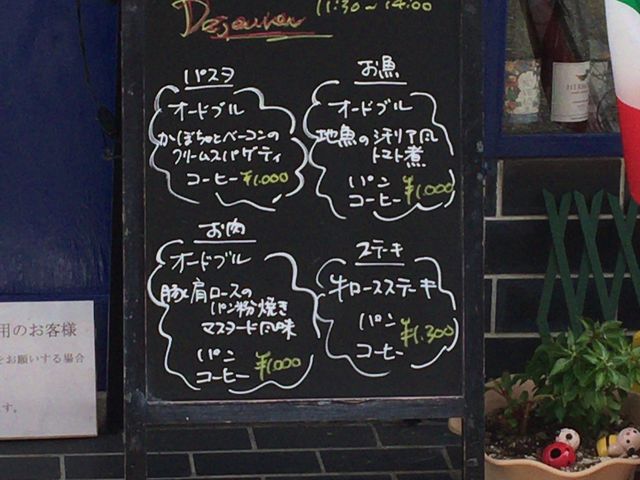 Dejeuner 11:30~14:00
パスタ
オードブル
かぼちゃとベーコンの
クリームスパゲティ
コーヒー ¥1.000
お魚
オードブル
地魚のシチリア風
トマト煮
パン
コーヒー ¥1.000
お肉
オードブル
豚肩ロースの
パン粉焼き
マスタード風味
パン
コーヒー ¥1.000
ステーキ
牛ロースステーキ
パン
コーヒー ¥1.300
用のお客様
をお願いする場合
す。